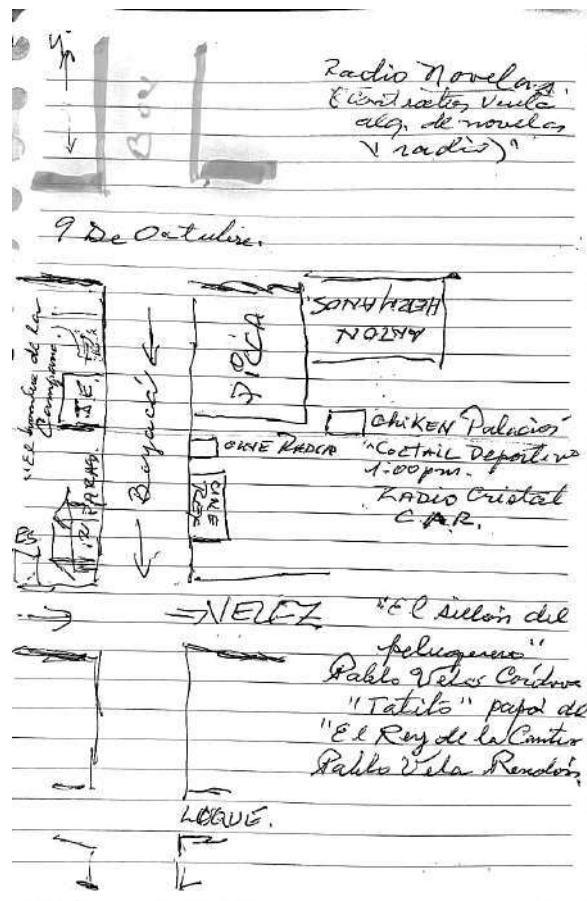 Radio Novelas.
(Contratos venta
alg. de novelas
radio)"
Boy
9 De Octubre.
"El hombre de la
Campana.
Boyacá
ANTON
HERMANOS
CHIKEN Palacios
"COCTAIL Deportivo
1:00 pm.
RADIO Cristal
C.A.R.
CINE
REX
VELEZ
"El sillón del
peluquero"
Pablo Vela Córdova
"Tatito" papá de
"El Rey de la Cantera
Pablo Vela Rendón
LUQUE.